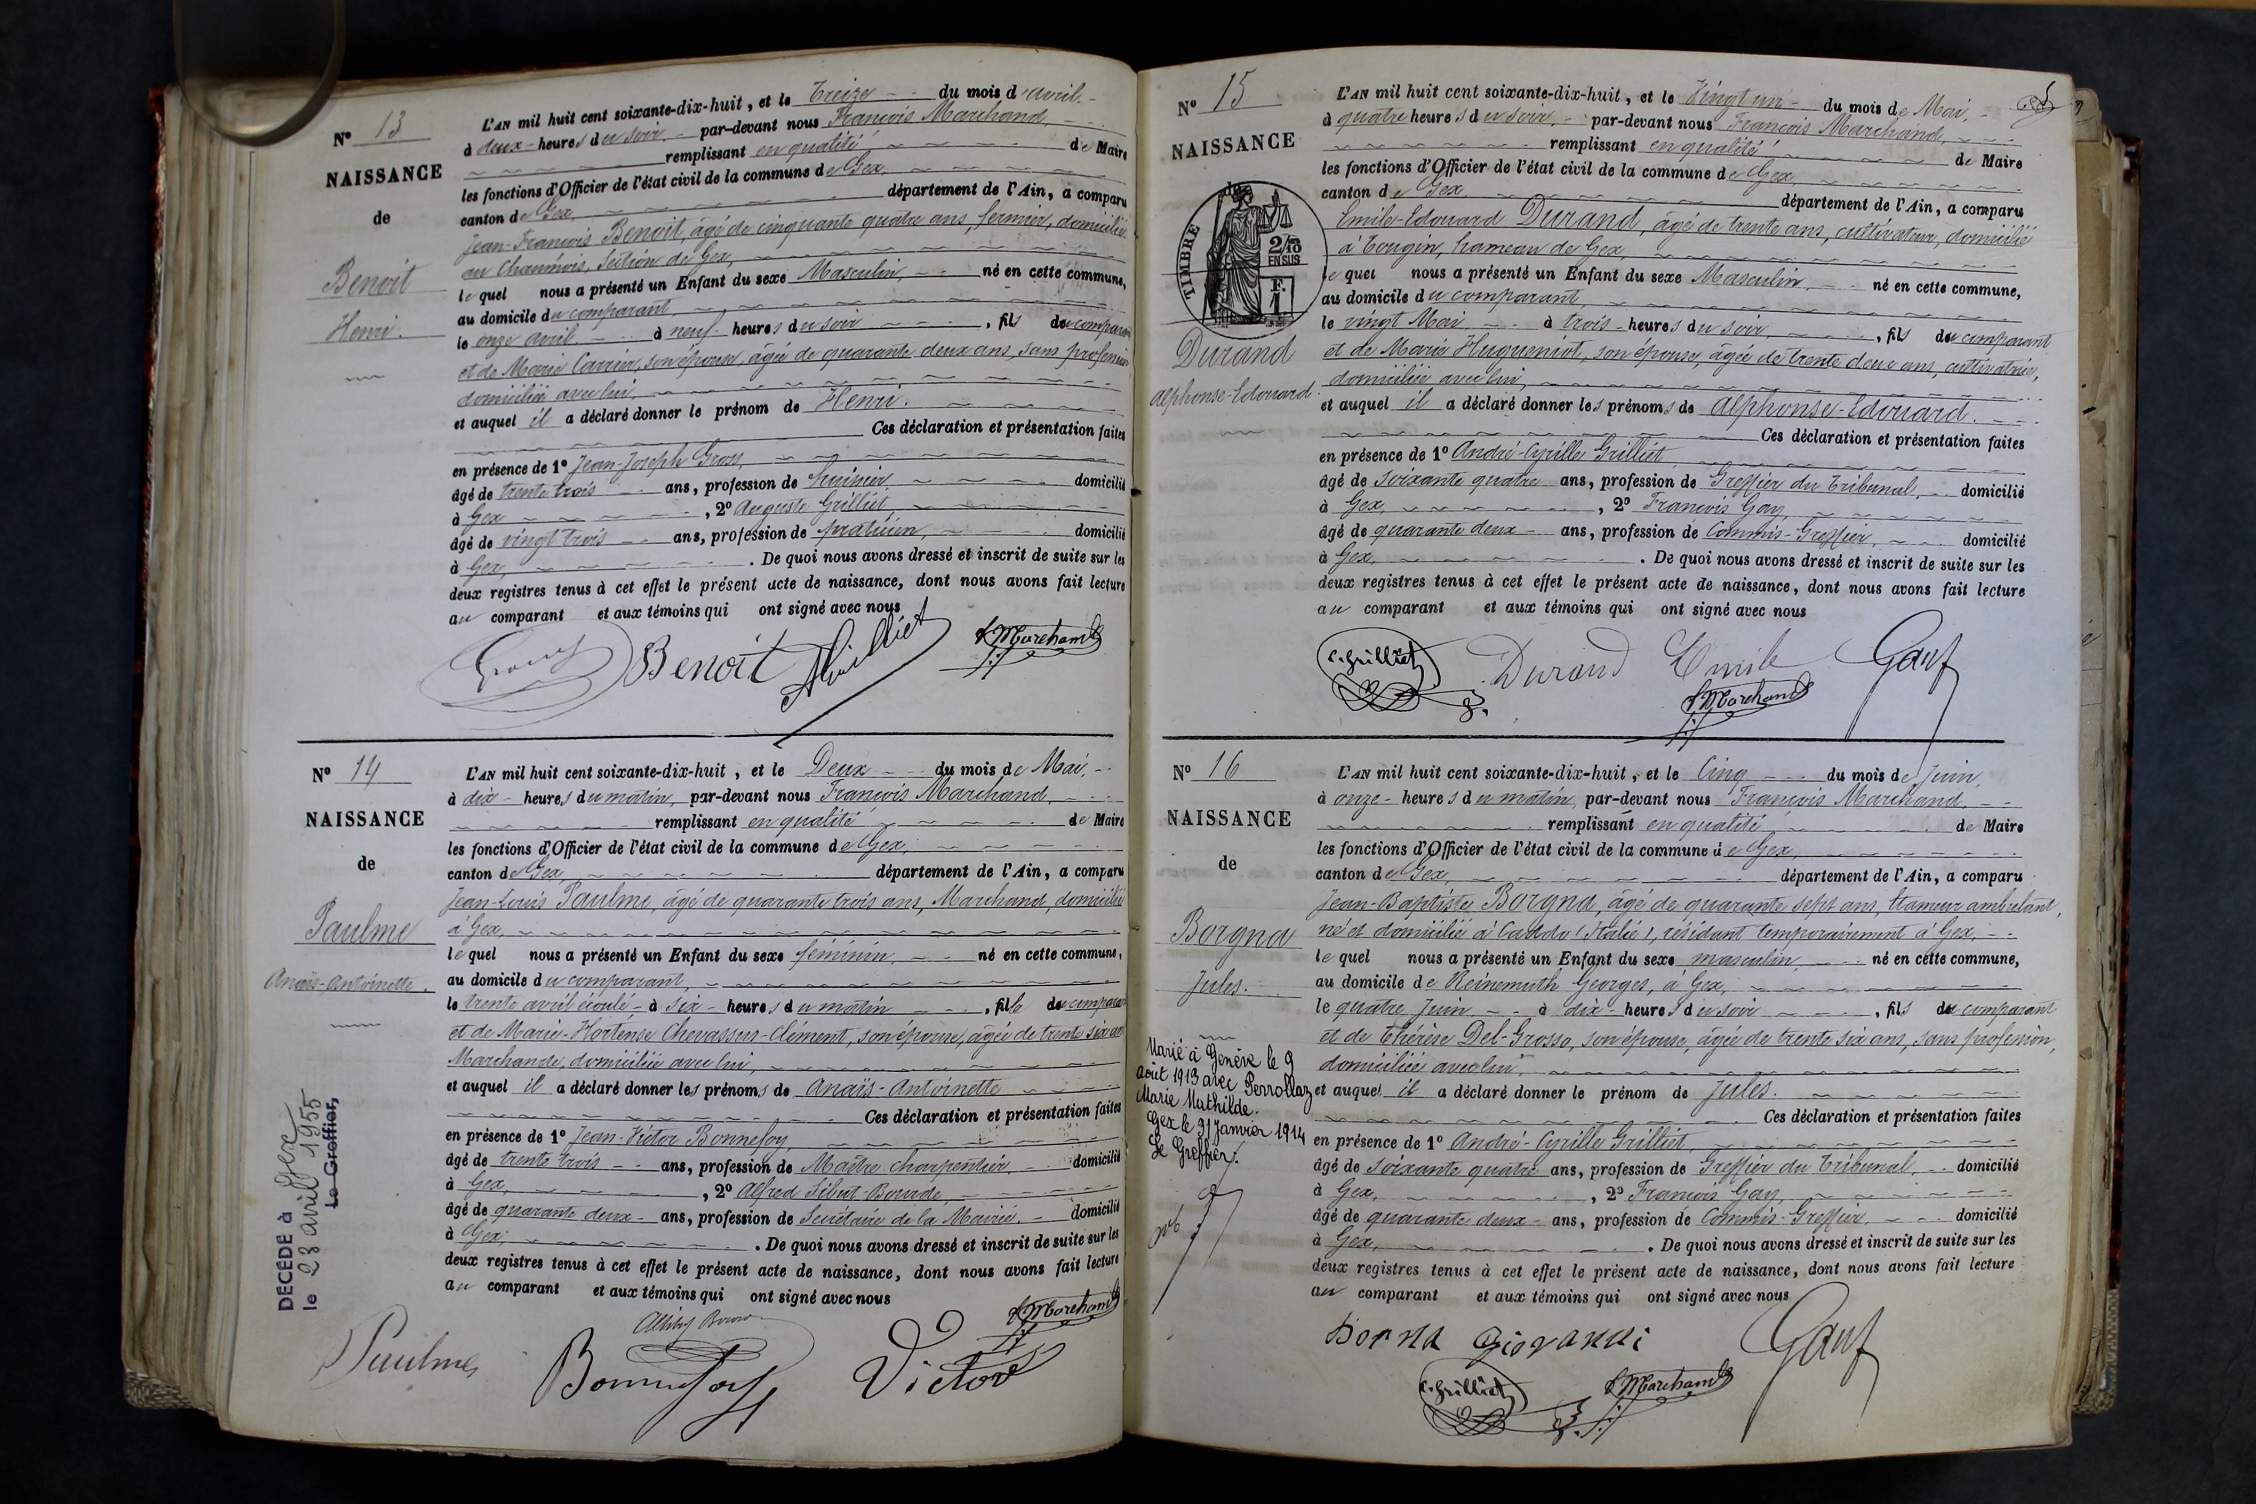 N° 13
NAISSANCE
de
Benoit
Henri.
L'AN mil huit cent soixante-dix-huit, et le Treize du mois d'avril.
à deux heures du soir, par-devant nous François Marchand,
remplissant en qualité de Maire
les fonctions d'Officier de l'état civil de la commune de Gex,
canton de Gex, département de l'Ain, a comparu
Jean-François Benoit, âgé de cinquante quatre ans, fermier, domicilié
au Section de Gex,
lequel nous a présenté un Enfant du sexe Masculin, né en cette commune,
au domicile du comparant,
le onze avril à neuf heures du soir, fils du comparant
et de Marie Carrier, son épouse, âgée de quarante deux ans, sans profession
domiciliée avec lui,
et auquel il a déclaré donner le prénom de Henri.
Ces déclaration et présentation faites
en présence de 1° Jean-Joseph Gros,
âgé de trente trois ans, profession de huissier, domicilié
à Gex, 2° Auguste Grilliet,
âgé de vingt trois ans, profession de praticien, domicilié
à Gex, . De quoi nous avons dressé et inscrit de suite sur les
deux registres tenus à cet effet le présent acte de naissance, dont nous avons fait lecture
au comparant et aux témoins qui ont signé avec nous
Benoit AGrilliet f. Marchand
N° 14
NAISSANCE
de
Paulme
Anaïs-Antoinette.
DÉCÉDÉ à Gex
le 23 avril 1955
Le Greffier,
L'AN mil huit cent soixante-dix-huit, et le Deux du mois de Mai,
à dix heures du matin, par-devant nous François Marchand,
remplissant en qualité de Maire
les fonctions d'Officier de l'état civil de la commune de Gex,
canton de Gex, département de l'Ain, a comparu
Jean-Louis Paulme, âgé de quarante trois ans, Marchand, domicilié
à Gex,
lequel nous a présenté un Enfant du sexe féminin, né en cette commune,
au domicile du comparant,
le trente avril écoulé, à six heures du matin, fille du comparant
et de Marie-Hortense Chevassus-Clément, son épouse, âgée de trente six ans
Marchande, domiciliée avec lui,
et auquel il a déclaré donner les prénoms de Anaïs-Antoinette
Ces déclaration et présentation faites
en présence de 1° Jean-Victor Bonnefoy,
âgé de trente trois ans, profession de Maître charpentier, domicilié
à Gex, 2° Alfred
âgé de quarante deux ans, profession de Secrétaire de la Mairie, domicilié
à Gex, . De quoi nous avons dressé et inscrit de suite sur les
deux registres tenus à cet effet le présent acte de naissance, dont nous avons fait lecture
au comparant et aux témoins qui ont signé avec nous
f. Marchand
Paulme Bonnefoy Victor
N° 15
NAISSANCE
TIMBRE
2/10
EN SUS
F.
1
Durand
Alphonse-Edouard.
L'AN mil huit cent soixante-dix-huit, et le Vingt un du mois de Mai,
à quatre heures du soir, par-devant nous François Marchand,
remplissant en qualité de Maire
les fonctions d'Officier de l'état civil de la commune de Gex,
canton de Gex, département de l'Ain, a comparu
Emile-Edouard Durand, âgé de trente ans, cultivateur, domicilié
à Tougin, hameau de Gex,
lequel nous a présenté un Enfant du sexe Masculin, né en cette commune,
au domicile du comparant,
le vingt Mai à trois heures du soir, fils du comparant
et de Marie Hugueniot, son épouse, âgée de trente deux ans, cultivatrice,
domiciliée avec lui,
et auquel il a déclaré donner les prénoms de Alphonse-Edouard.
Ces déclaration et présentation faites
en présence de 1° André-Cyrille Grilliet,
âgé de soixante quatre ans, profession de Greffier du Tribunal, domicilié
à Gex, 2° François Gay,
âgé de quarante deux ans, profession de Commis-Greffier, domicilié
à Gex, . De quoi nous avons dressé et inscrit de suite sur les
deux registres tenus à cet effet le présent acte de naissance, dont nous avons fait lecture
au comparant et aux témoins qui ont signé avec nous
C. Grilliet Durand Emile Gay f.
f. Marchand
N° 16
NAISSANCE
de
Borgna
Jules.
Marié à Genève le 9
août 1913 avec Perrollaz
Marie Mathilde.
Gex le 31 janvier 1914
Le Greffier.
L'AN mil huit cent soixante-dix-huit, et le Cinq du mois de Juin,
à onze heures du matin, par-devant nous François Marchand,
remplissant en qualité de Maire
les fonctions d'Officier de l'état civil de la commune de Gex,
canton de Gex, département de l'Ain, a comparu
Jean-Baptiste Borgna, âgé de quarante sept ans, étameur ambulant,
né et domicilié à (Italie), résidant temporairement à Gex,
lequel nous a présenté un Enfant du sexe masculin, né en cette commune,
au domicile de Reinemuth Georges, à Gex,
le quatre Juin, à dix heures du soir, fils du comparant
et de Thérèse Del-Grosso, son épouse, âgée de trente six ans, sans profession,
domiciliée avec lui,
et auquel il a déclaré donner le prénom de Jules.
Ces déclaration et présentation faites
en présence de 1° André-Cyrille Grilliet,
âgé de soixante quatre ans, profession de Greffier du Tribunal, domicilié
à Gex, 2° François Gay,
âgé de quarante deux ans, profession de Commis-Greffier, domicilié
à Gex, . De quoi nous avons dressé et inscrit de suite sur les
deux registres tenus à cet effet le présent acte de naissance, dont nous avons fait lecture
au comparant et aux témoins qui ont signé avec nous
Borna Giovanni Gay f.
C. Grilliet f. Marchand